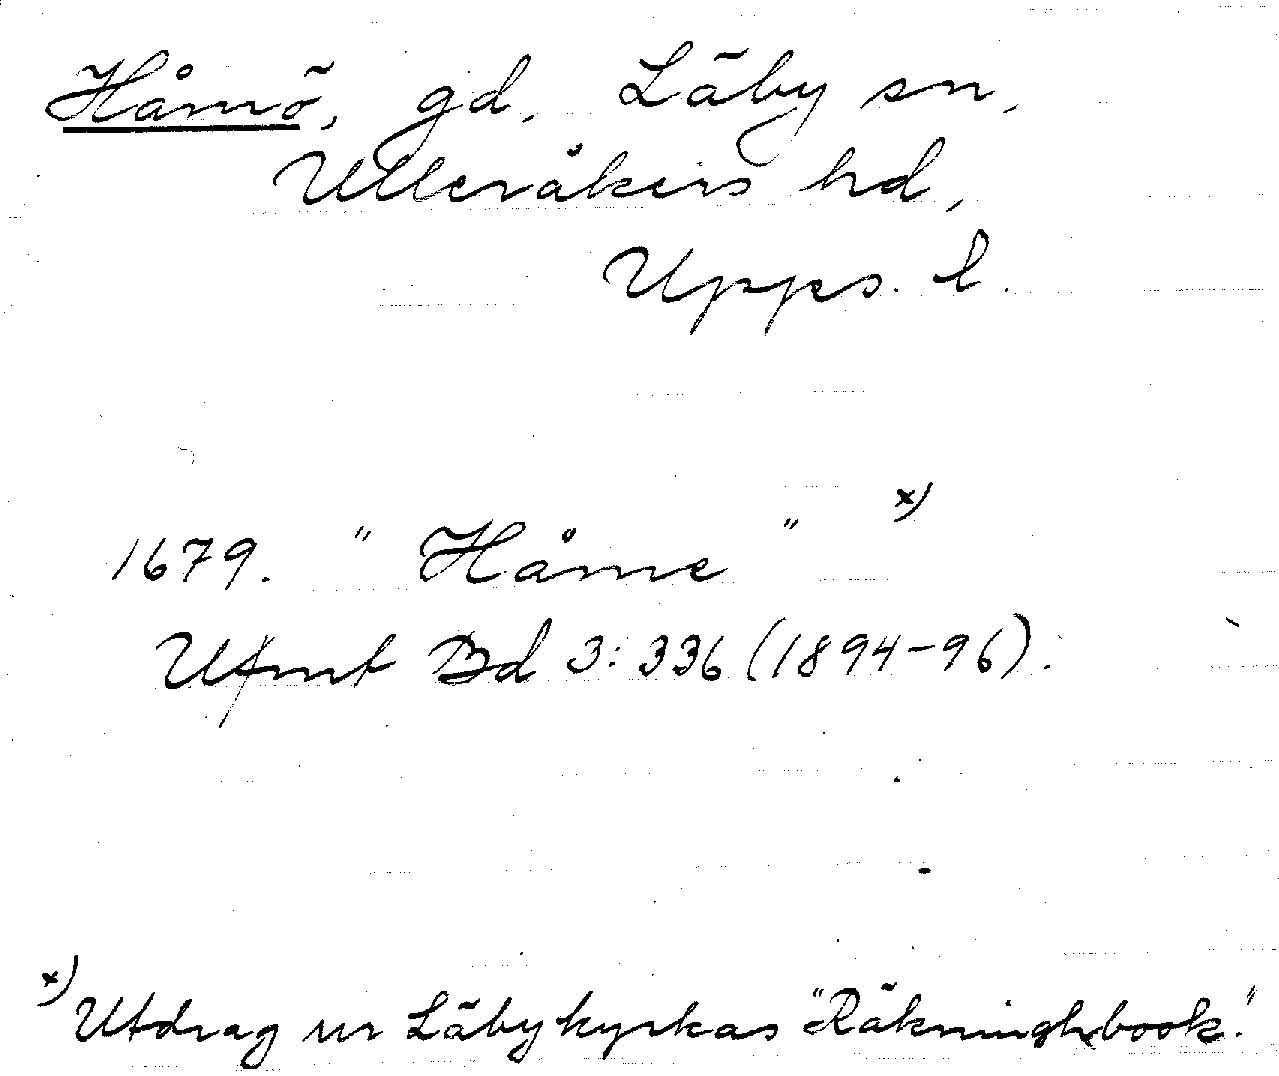 Håmö, gd, Läby sn,
Ulleråkers hd,
Upps. l.
1679. "Håme" x)
Ufmt Bd 3:336 (1894-96).
x) Utdrag ur Läby kyrkas "Räkninghbook."